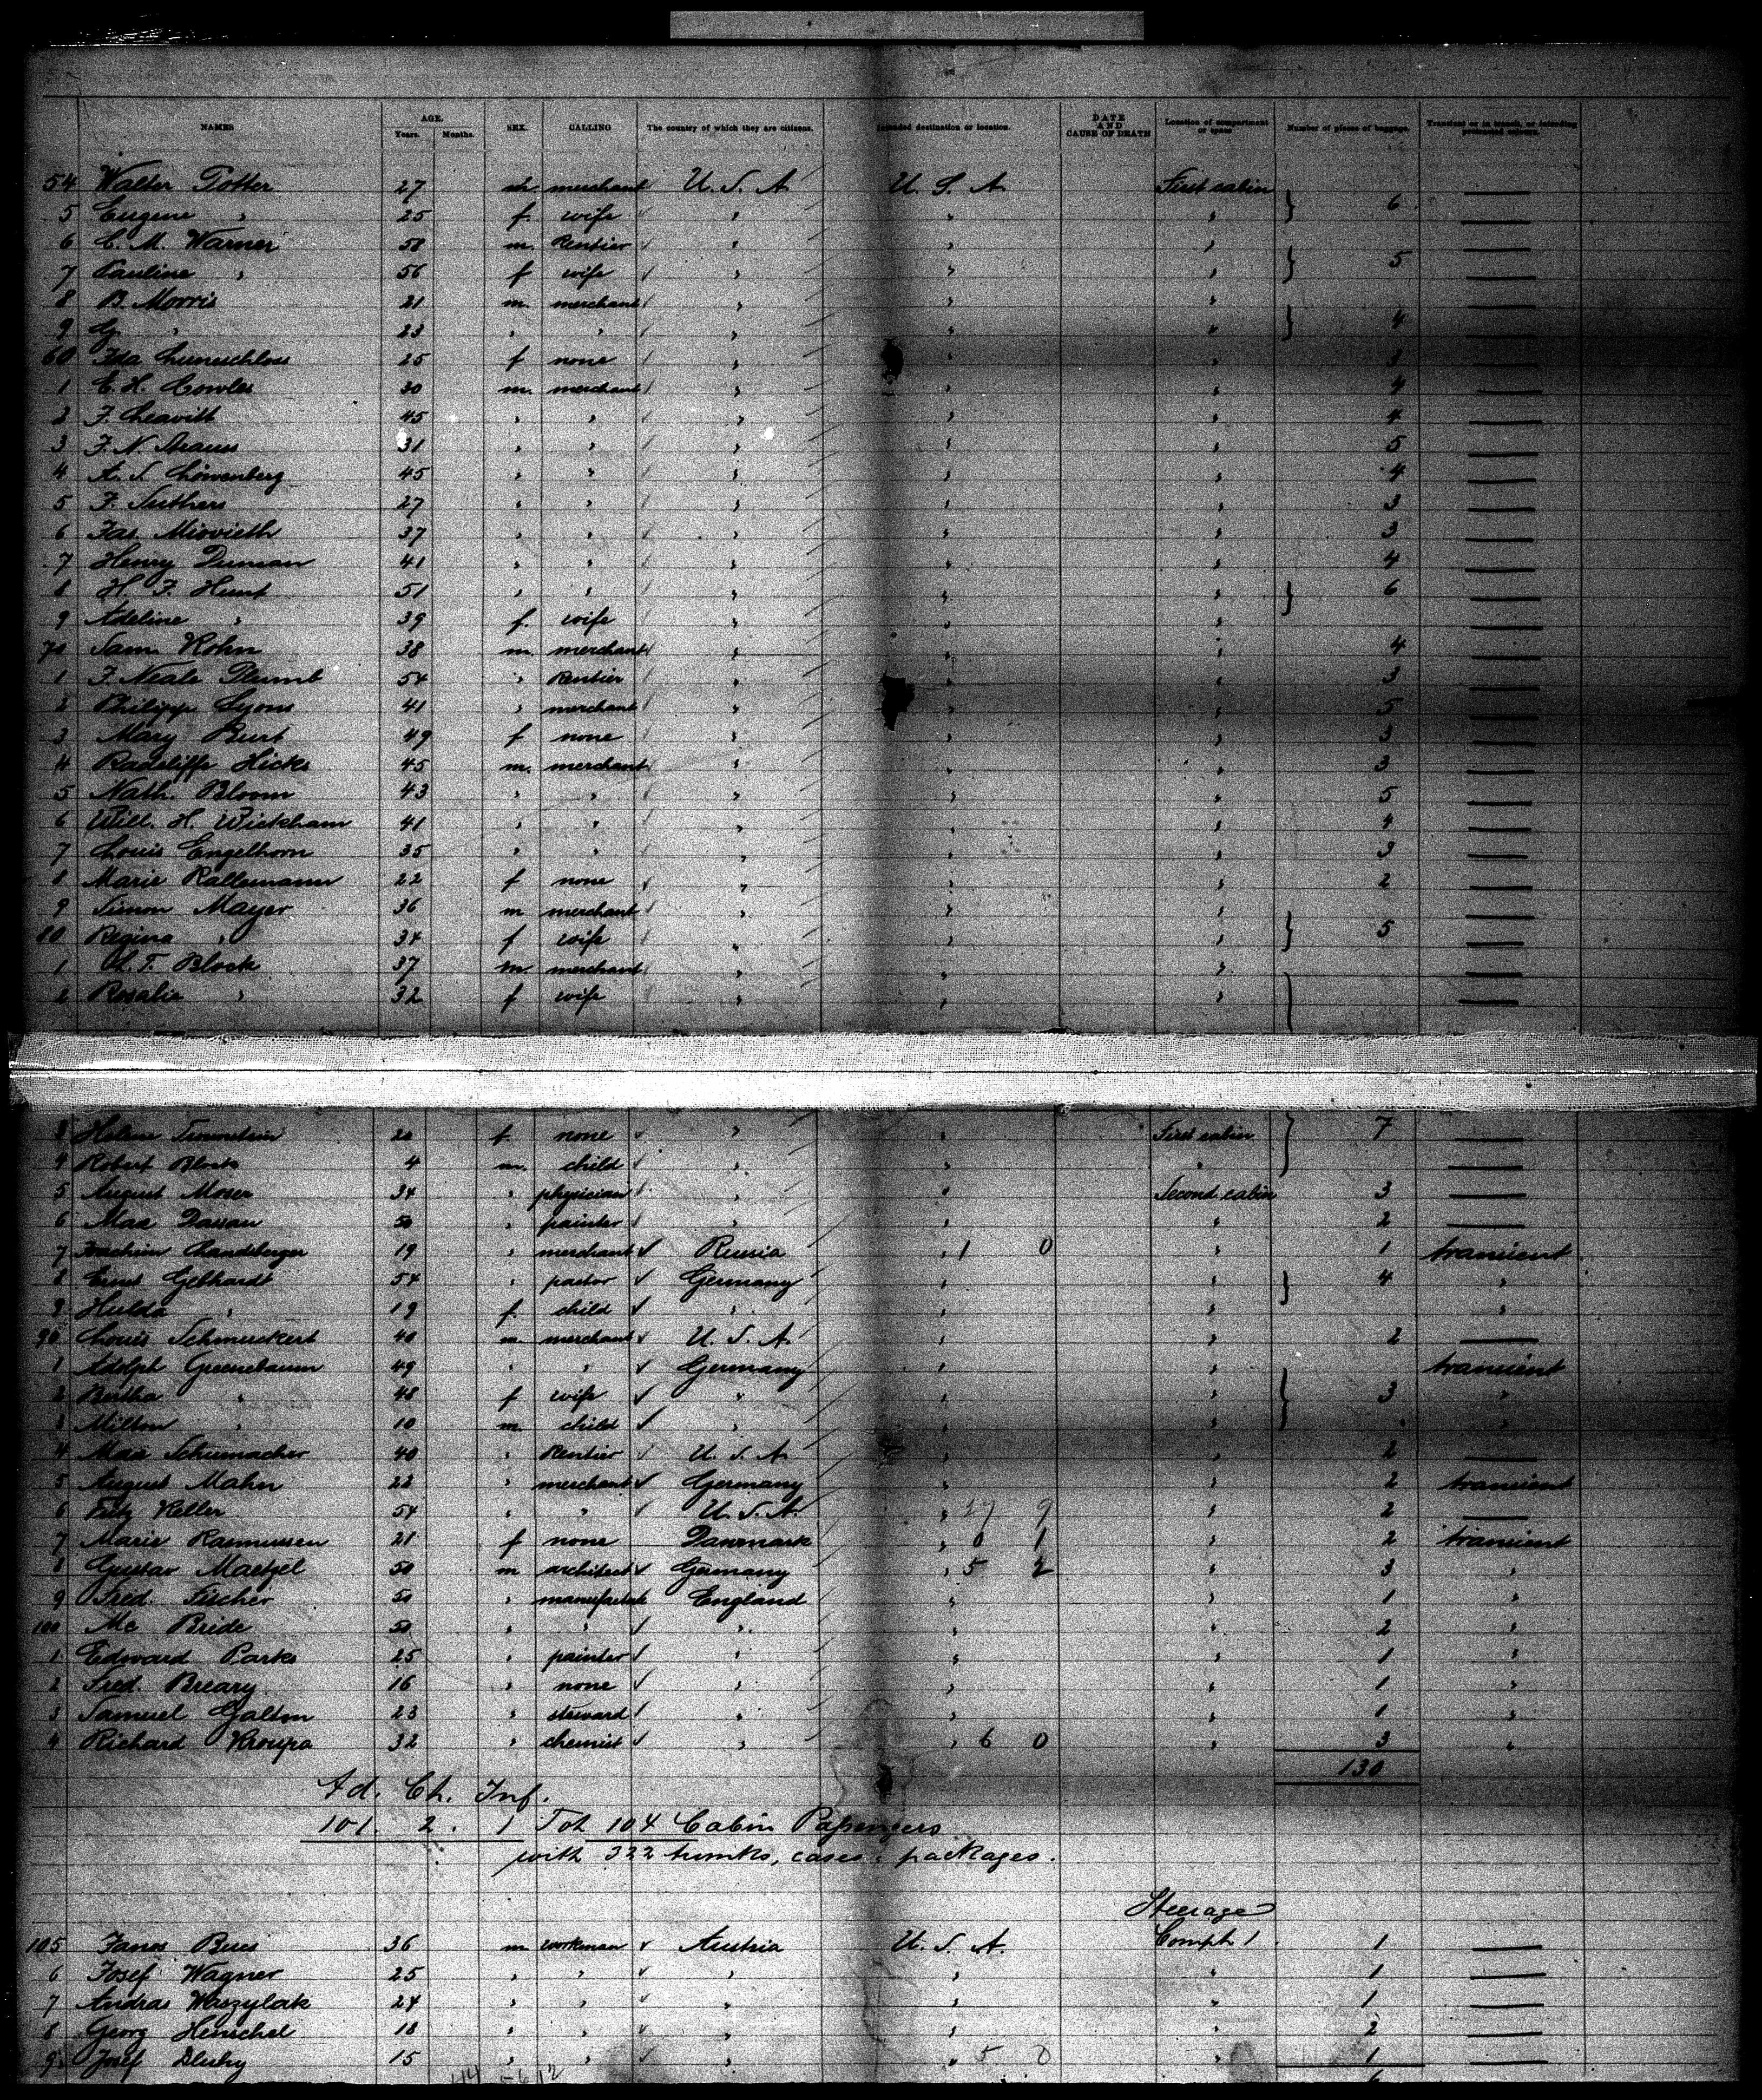 NAMES AGE. Years. Months. SEX. CALLING The country of which they are citizens. Intended destination or location. DATE AND CAUSE OF DEATH Location of compartment or space Number of pieces of baggage. Transient or in transit, or intending protracted sojourn.
54 Walter Potter 27 m. merchant U. S. A. U. S. A. First cabin —
5 Eugene " 25 f. wife " " " } 6 —
6 C. M. Warner 58 m. Rentier " " " —
7 Pauline " 56 f wife " " " } 5 —
8 B. Morris 21 m. merchant " " " —
9 G. " 23 " " " " " } 4 —
60 Ida Luneschloss 25 f none " " " 3 —
1 C. H. Cowles 30 m. merchant " " " 4 —
2 F. Leavitt 45 " " " " " 4 —
3 F. N. Strauss 31 " " " " " 5 —
4 A. S. Löwenberg 45 " " " " " 4 —
5 F. Suthers 27 " " " " " 3 —
6 Jas. 37 " " " " " 3 —
7 Henry Duncan 41 " " " " " 4 —
8 H. F. Hunt 51 " " " " " } 6 —
9 Adeline " 39 f. wife " " " —
70 Sam. Kohn 38 m. merchant " " " 4 —
1 F. Neale Plumb 54 " Rentier " " " 3 —
2 Philipp Lyons 41 " merchant " " " 5 —
3 Mary Burt 49 f none " " " 3 —
4 Radcliffe Hicks 45 m. merchant " " " 3 —
5 Nath. Bloom 43 " " " " " 5 —
6 Will. H. Wickham 41 " " " " " 4 —
7 Louis Engelhorn 35 " " " " " 3 —
8 Marie Rallemann 22 f none " " " 2 —
9 Simon Mayer 36 m merchant " " " —
80 Regina " 34 f wife " " " } 5 —
1 L. T. Block 37 m. merchant " " " —
2 Rosalie " 32 f wife " " " —
3 Helene 20 f. none " First cabin } 7 —
4 Robert Block 4 m. child " " " —
5 August Moser 34 " physician " " Second cabin 3 —
6 Max Davan 50 " painter " " " 2 —
7 Joachim Landsberger 19 " merchant Russia " 1 0 " 1 transient
8 Ernst Gebhardt 54 " pastor Germany " " } 4 "
9 Hulda " 19 f. child " " " "
90 Louis Schmuckert 40 m. merchant U. S. A. " " 2 —
1 Adolph Greenebaum 49 " " Germany " " transient
2 Bertha " 48 f wife " " " } 3 "
3 Milton " 10 m. child " " " "
4 Max Schumacher 40 " Rentier U. S. A. " " 2 —
5 August Mahn 22 " merchant Germany " " 2 transient
6 Fritz Keller 54 " " U. S. A. " 9 " 2 —
7 Marie Rasmussen 21 f none Danemark " 0 1 " 2 transient
8 Gustav Maetzel 50 m architect Germany " 5 2 " 3 "
9 Fred. Fischer 50 " England " " 1 "
100 Mc Bride 50 " " " " " 2 "
1 Edward Parks 25 " painter " " " 1 "
2 Fred. Breary 16 " none " " " 1 "
3 Samuel Galton 23 " steward " " " 1 "
4 Richard Kroupa 32 " chemist " " 6 0 " 3 "
130
Ad. Ch. Inf.
101. 2. 1 Tot 104 Cabin Passengers
with 322 trunks, cases & packages.
Steerage
105 Janos Bucs 36 m workman Austria U. S. A. Compt. 1. 1 —
6 Josef Wagner 25 " " " " " 1 —
7 Andras Waszylak 24 " " " " " 1 —
8 Georg Henschel 18 " " " " " 2 —
9 Josef Dluhy 15 " " " " 5 0 " 1 —
6